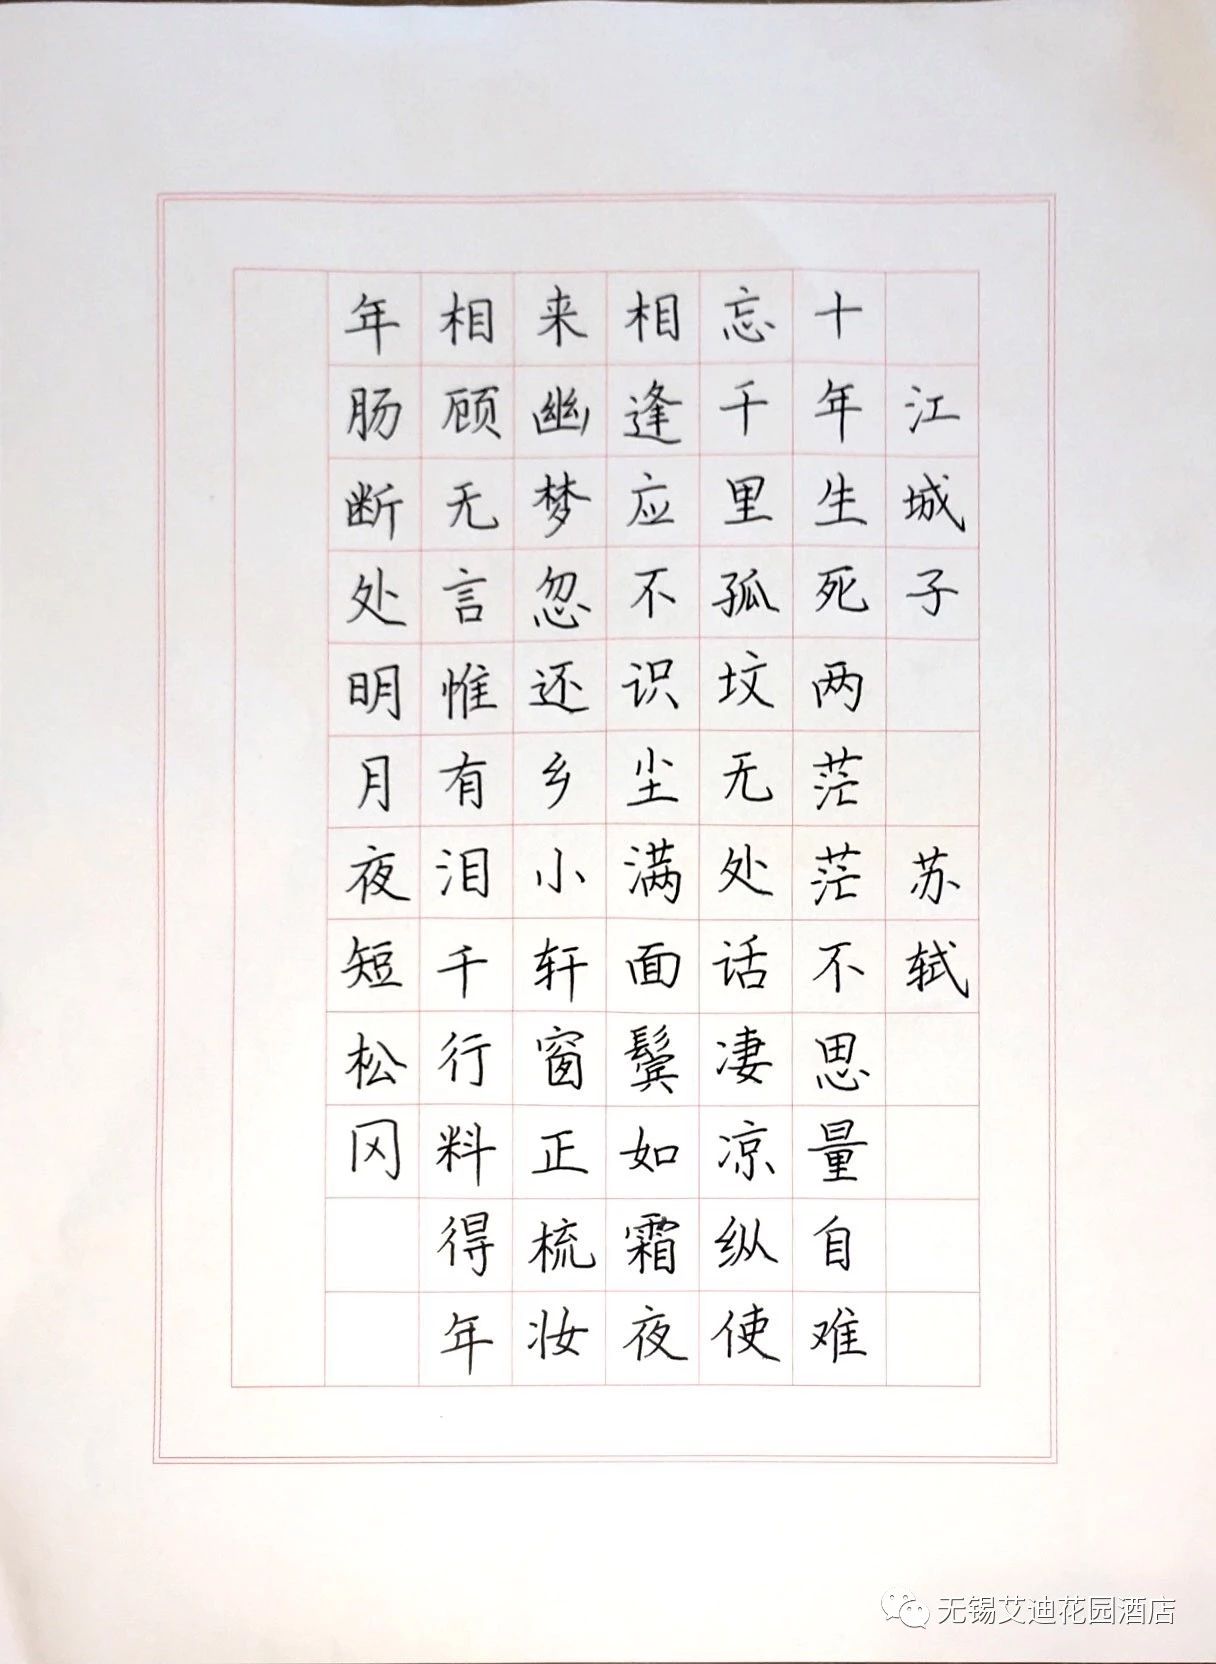 江城子 苏轼
十年生死两茫茫不思量自难
忘千里孤坟无处话凄凉纵使
相逢应不识尘满面鬓如霜夜
来幽梦忽还乡小轩窗正梳妆
相顾无言惟有泪千行料得年
年肠断处明月夜短松冈
无锡艾迪花园酒店